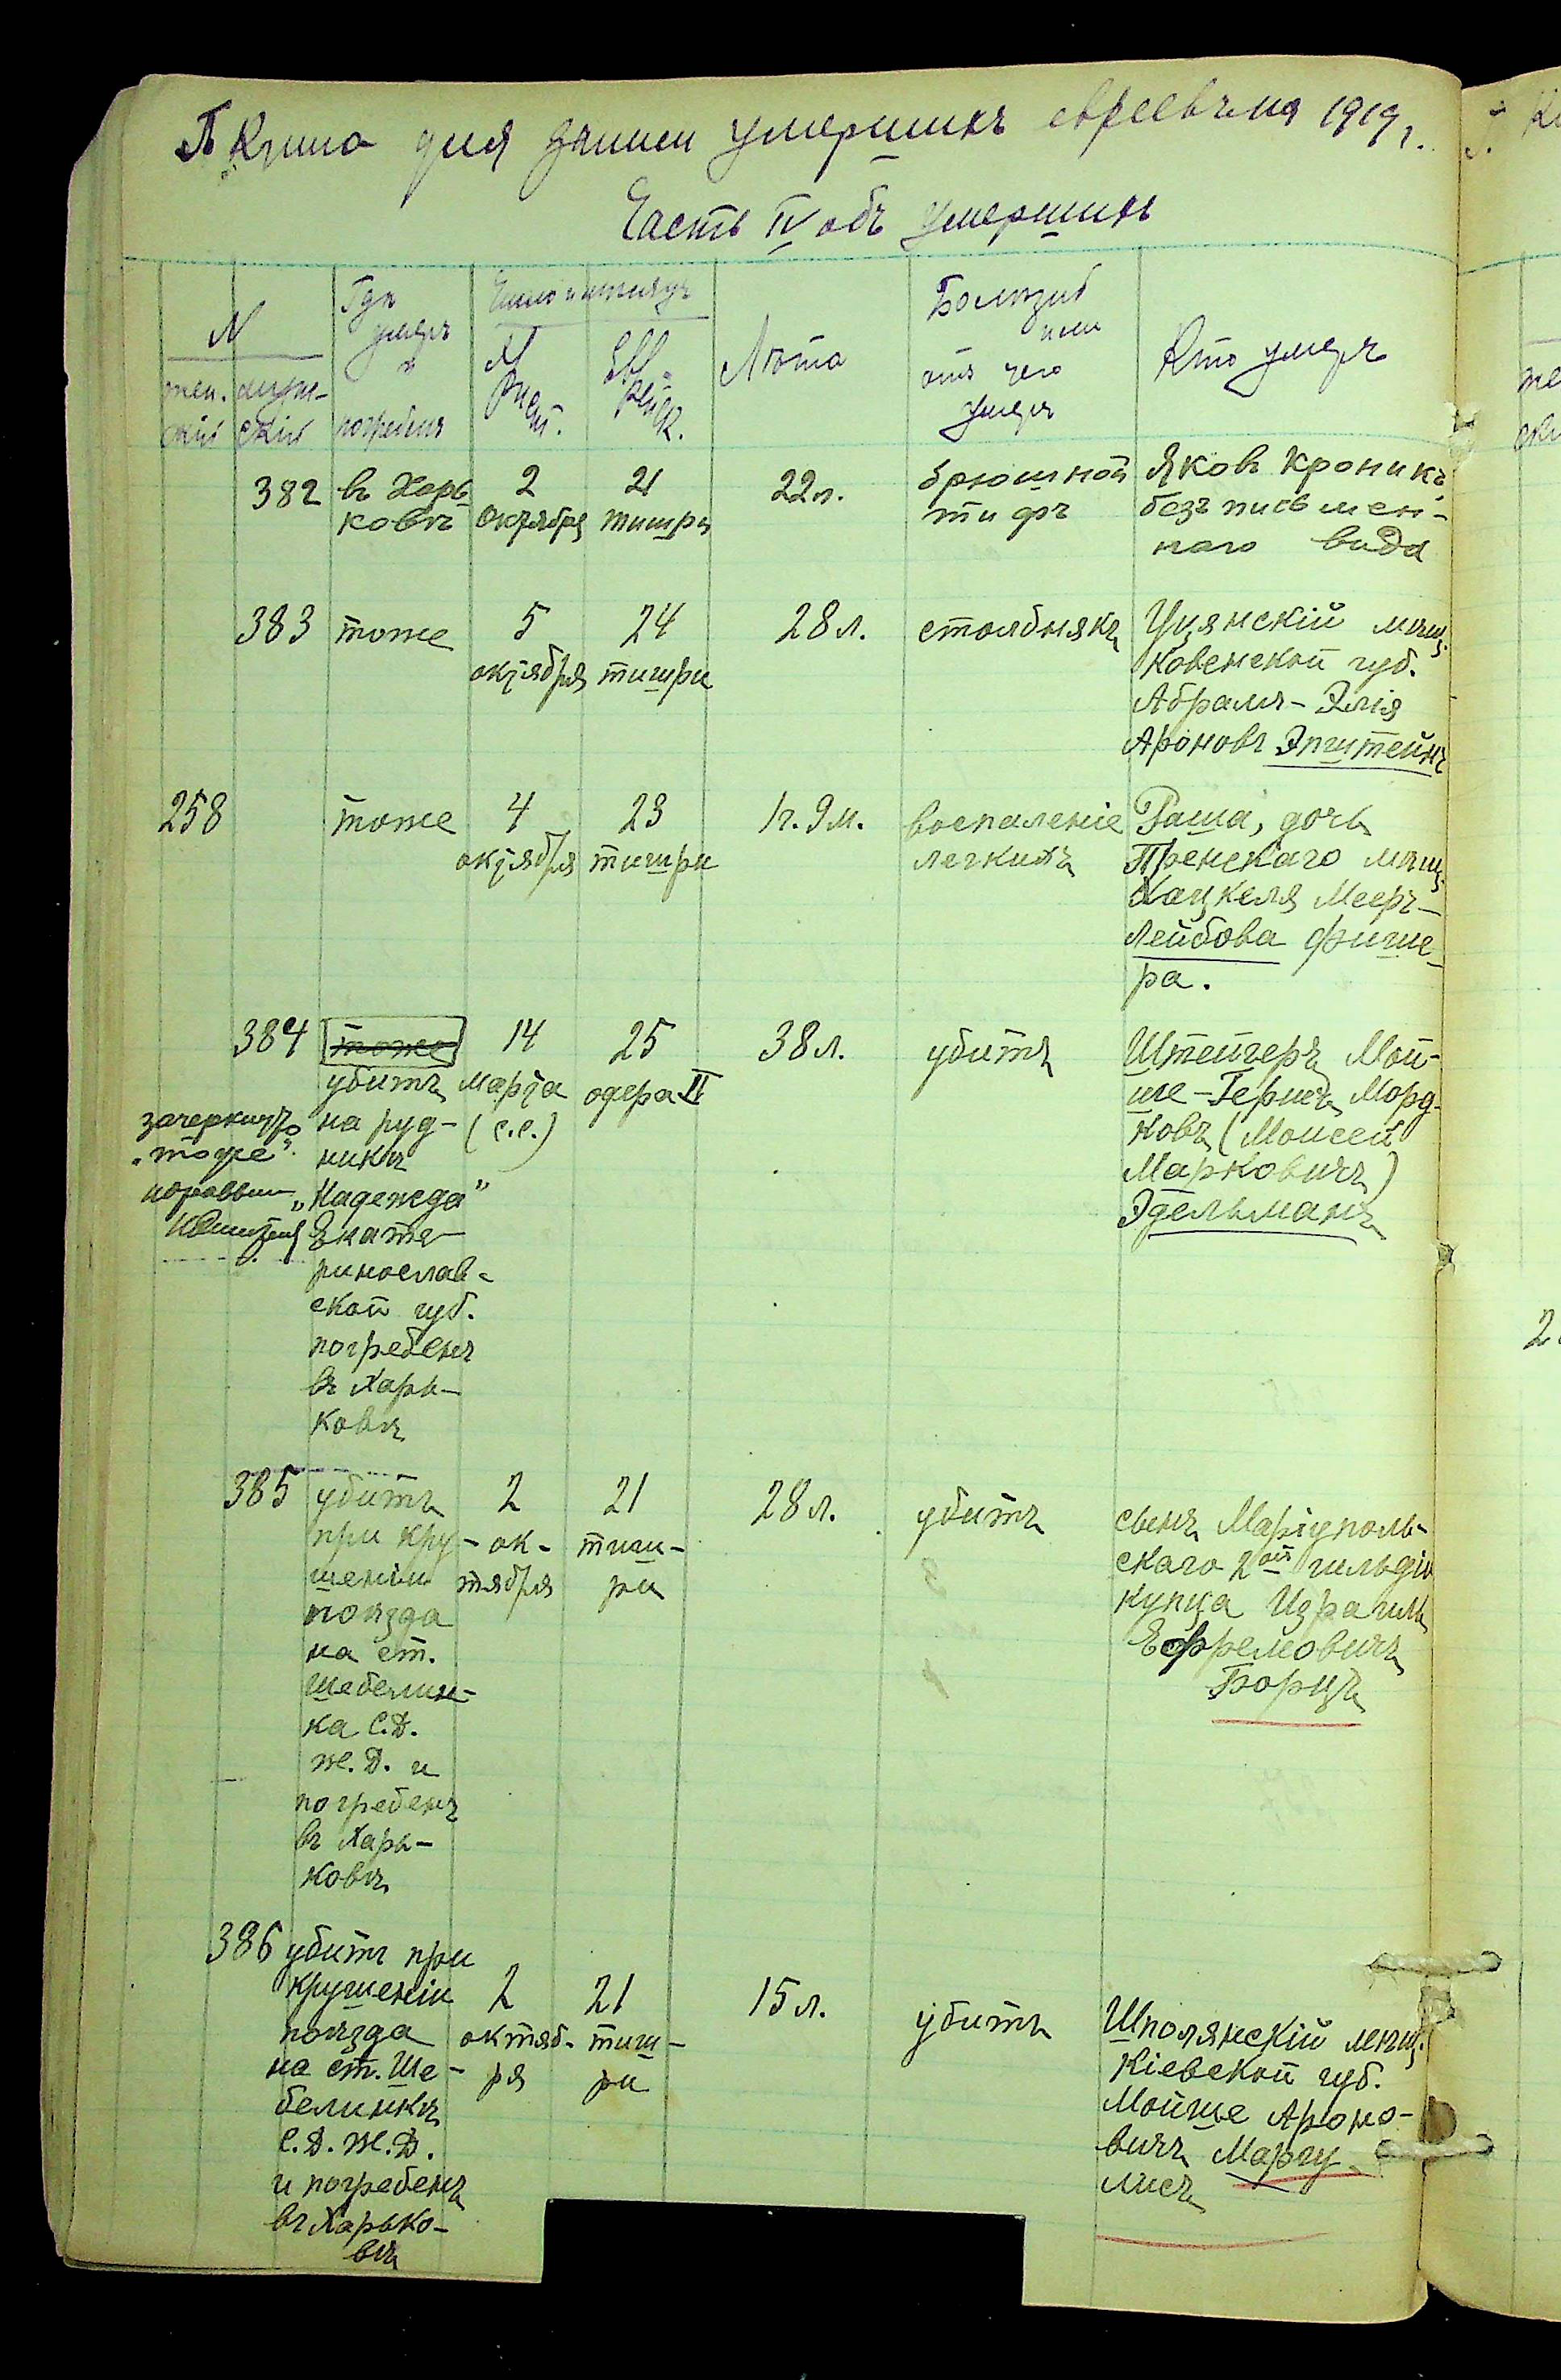 Книга для записи умершихъ евреевъ на 1919 г.
Часть IV объ умершихъ
N
жен-
скій
муж-
скій
Гдѣ
умеръ
и
погребенъ
Число и мѣсяцъ
Христ.
Еврейск.
Лѣта
Болѣзнь
или
отъ чего
умеръ
Кто умеръ
382 въ Харь-
ковѣ
2
октября
21
тишри
22 л.
брюшной
тифъ
Яковъ Кроникъ
безъ письмен-
наго вида
383 тоже
5
октября
24
тишри
28 л.
столбнякъ
Уцянскій мѣщ.
Ковенской губ.
Абрамъ-Элія
Ароновъ Эпштейнъ
258 тоже
4
октября
23
тишри
1 г. 9 м.
воспаленіе
легкихъ
Раша, дочь
Пренскаго мѣщ.
Хацкеля Мееръ-
Лейбова Фише-
ра.
384 тоже
убитъ
на руд-
никѣ
„Надежда"
Екате-
ринослав-
ской губ.
погребенъ
въ Харь-
ковѣ
зачеркнуто
„тоже".
14
марта
(с.с.)
25
одера II
38 л.
убитъ
Штейгеръ Мой-
ше-Гершъ Морд-
ковъ (Моисей
Марковичъ)
Эдельманъ
385 убитъ
при кру-
шеніи
поѣзда
на ст.
Шебелин-
ка С.Д.
Ж.Д. и
погребенъ
въ Харь-
ковѣ
2
ок-
тября
21
тиш-
ри
28 л.
убитъ
сынъ Маріуполь-
скаго 2ой гильдіи
купца Израиль
Ефремовичъ
Борцъ
386 убитъ при
крушеніи
поѣзда
на ст. Ше-
белинкѣ
С.Д.Ж.Д.
и погребенъ
въ Харько-
вѣ
2
октяб-
ря
21
тиш-
ри
15 л.
убитъ
Шполянскій мѣщ.
Кіевской губ.
Мойше Ароно-
вичъ Маргу-
лисъ